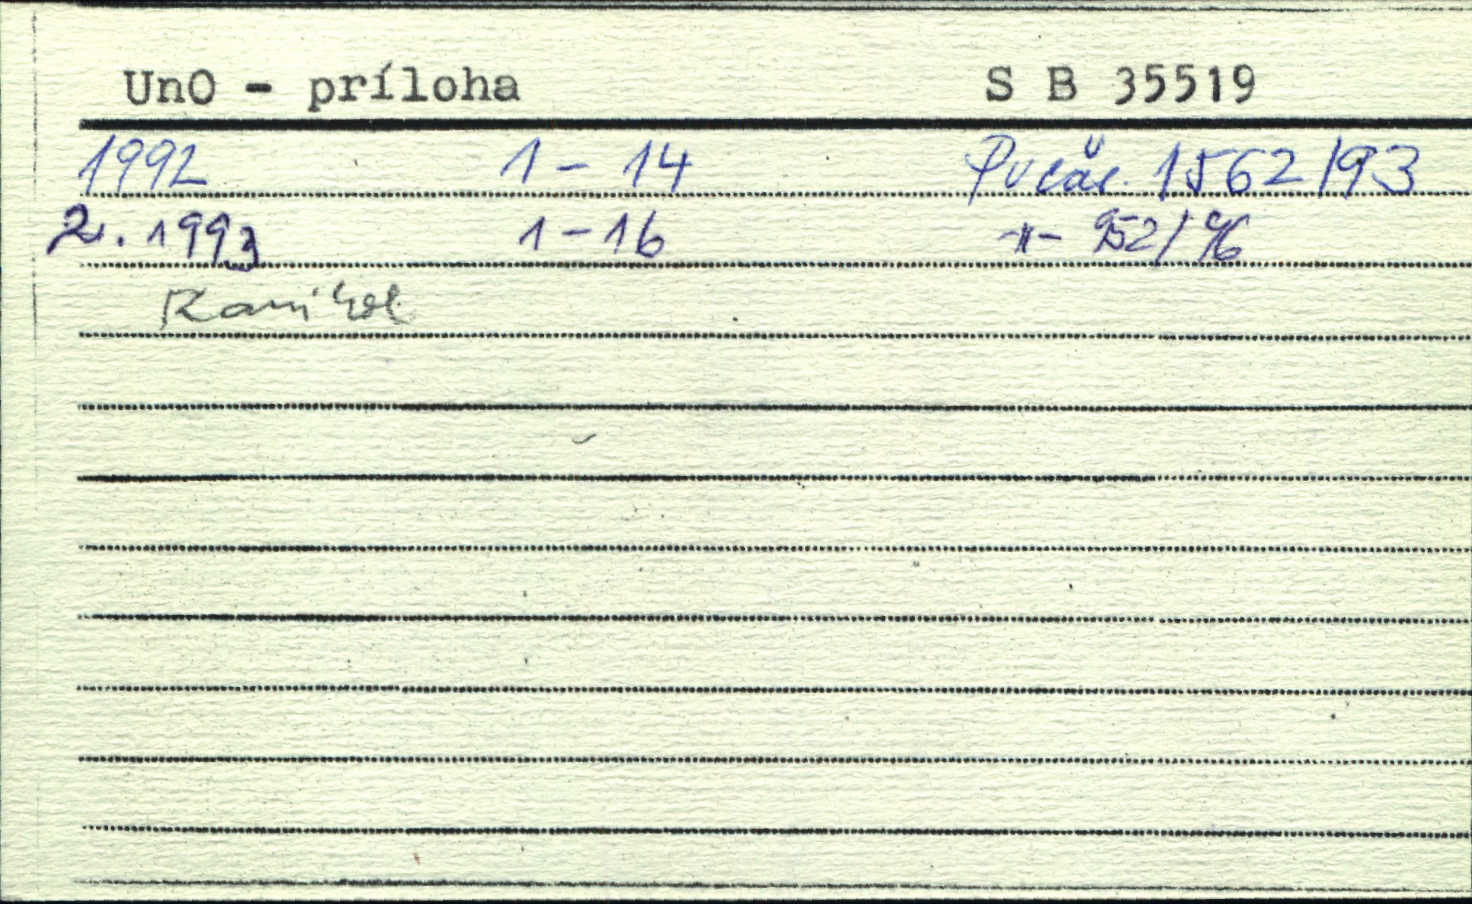 UnO - príloha S B 35519
1992 1 - 14 1562/93
2. 1993 1 - 16 -"- 952/96
Zanikol